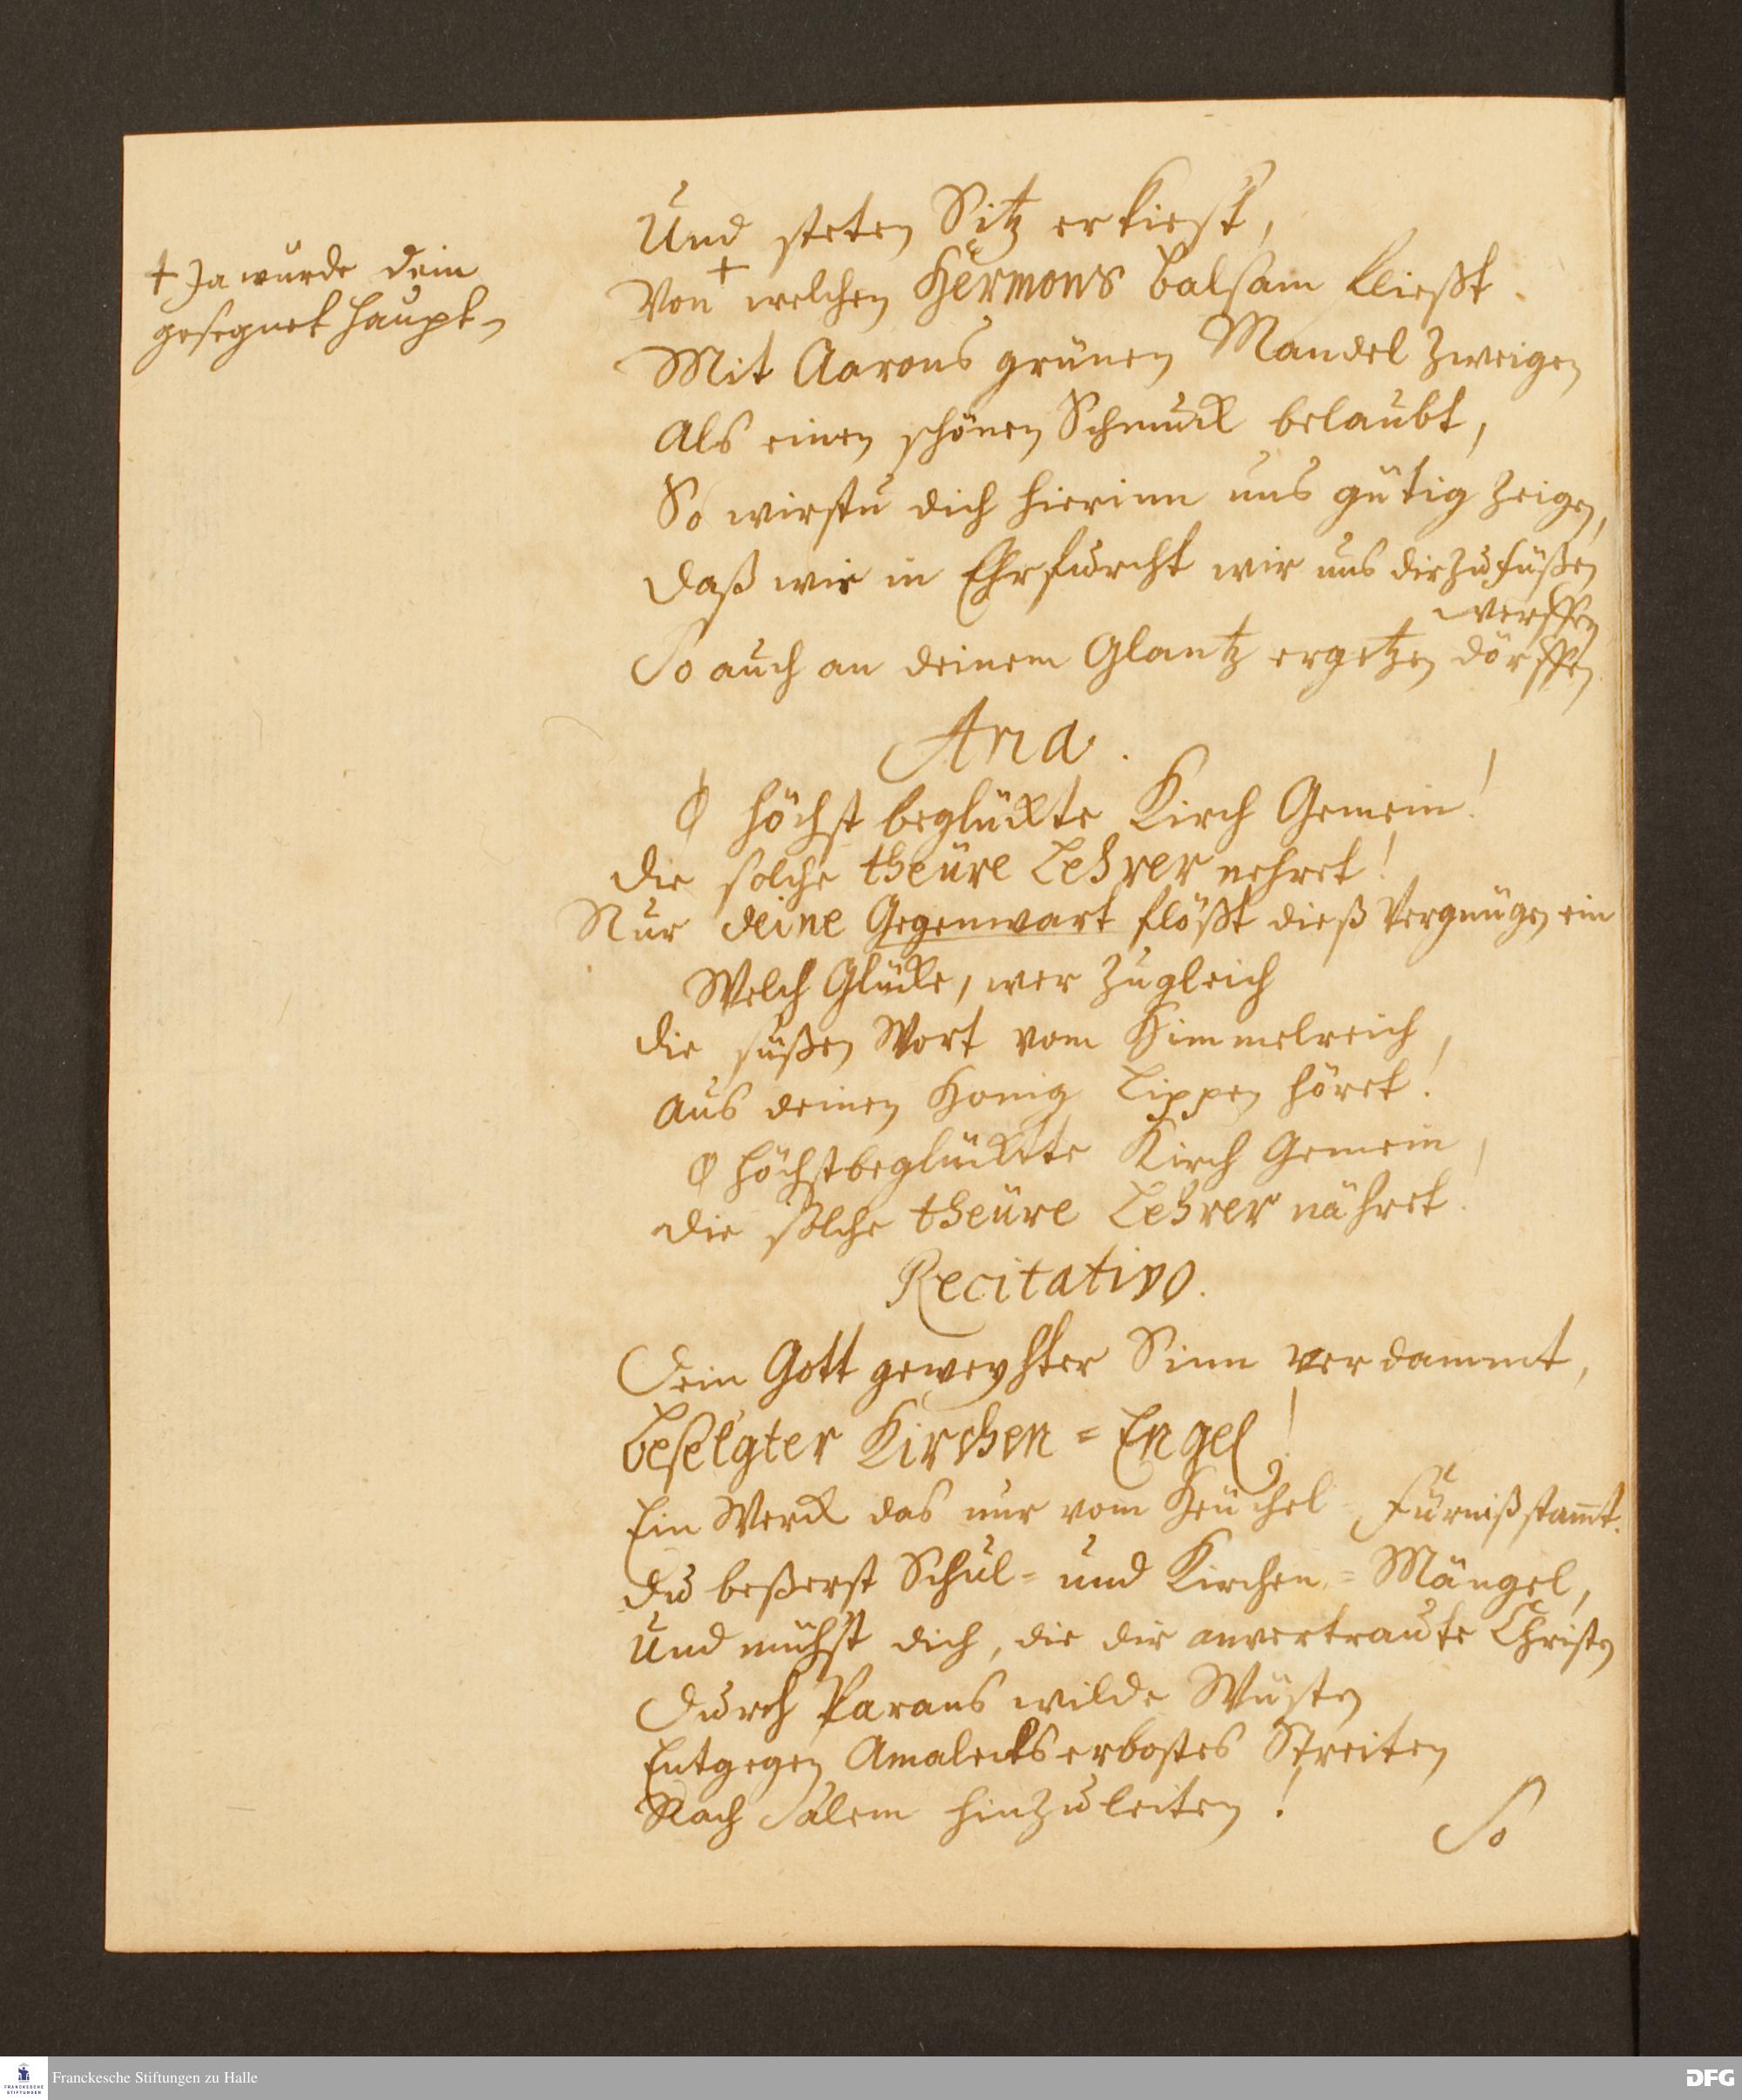 Und steten Sitz erkiest,
† Ja wurde dein
gesegnet Haupt
Von † welchen Hermons Balsam fliesst
Mit Aarons grünen Mandel Zweigen
Als einen schönen Schmuck belaubt,
So wirstu dich hierinn uns gütig zeigen,
Daß wir in Ehrfurcht wir uns dir zu füßen
werffen
So auch an deinem Glantz ergetzen dörffen
Aria.
O höchst beglückte Kirch Gemein!
Die solche theüre Lehrer nehret!
Nur deine Gegenwart flößt dieß Vergnügen ein
Welch Glücke, wer zugleich
Die süßen Wort vom Himmelreich,
Aus deinen Honig Lippen höret!
O höchstbeglückte Kirch Gemein,
Die solche theüre Lehrer nähret!
Recitativo.
Dein Gott geweyhter Sinn verdammt,
Beselgter Kirchen = Engel!
Ein Werck das nur vom Heüchel = Fürniß stam̄t.
Du beßerst Schul = und Kirchen = Mängel,
Und mühst dich, die dir anvertraute Christen
Durch Parans wilde Wüsten
Entgegen Amalecks erbostes Streiten
Nach Salem hinzuleiten!
So
Franckesche Stiftungen zu Halle
DFG